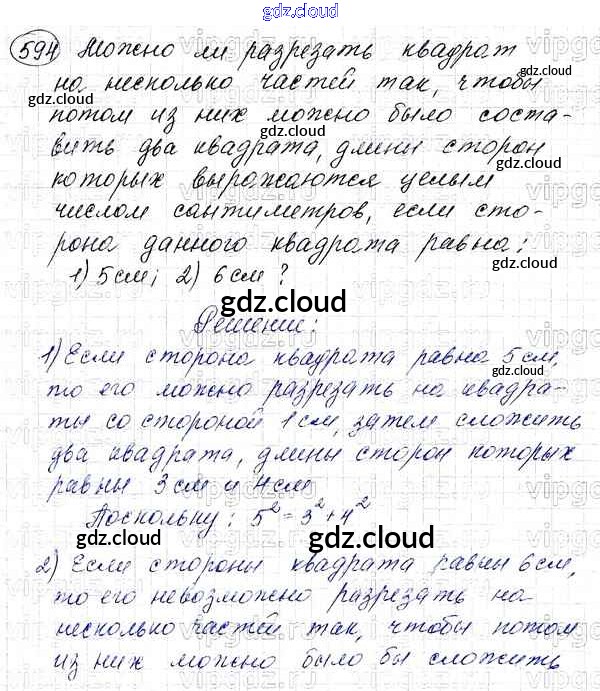 gdz.cloud
594 Можно ли разрезать квадрат
на несколько частей так, чтобы
потом из них можно было соста-
вить два квадрата, длины сторон
которых выражаются целым
числом сантиметров, если сто-
рона данного квадрата равна:
1) 5см; 2) 6см?
gdz.cloud
Решение:
1) Если сторона квадрата равна 5см,
то его можно разрезать на квадра-
ты со стороной 1см, затем сложить
два квадрата, длины сторон которых
равны 3см и 4см
Поскольку: 5²=3²+4²
gdz.cloud
2) Если стороны квадрата равны 6см,
то его невозможно разрезать на
несколько частей так, чтобы потом
из них можно было бы сложить